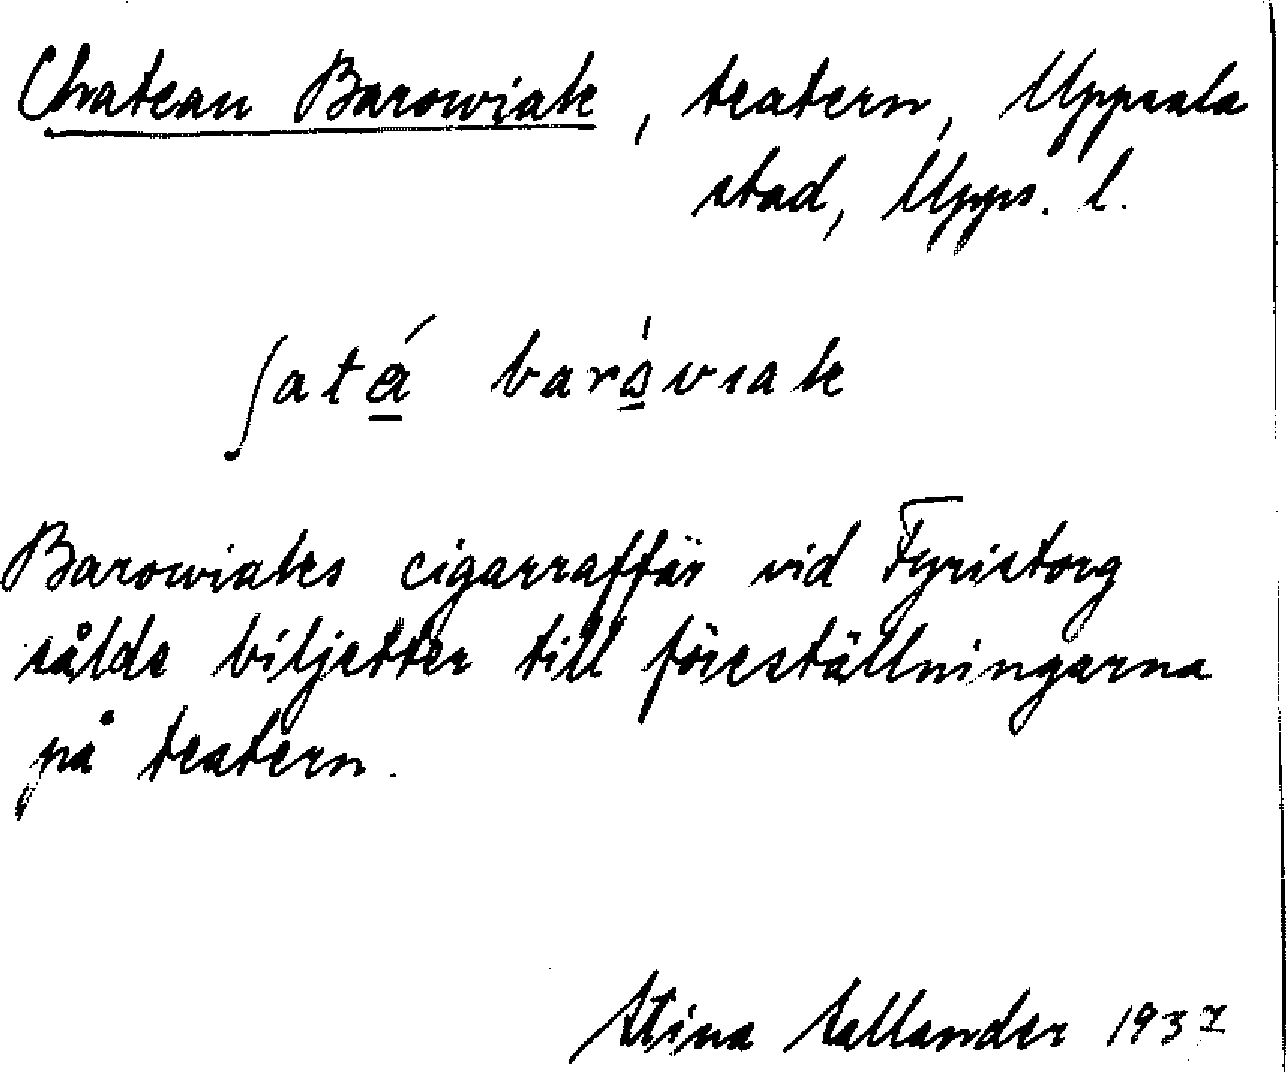 Chateau Barowiak, teatern, Uppsala
stad, Upps. l.
ʃatá baråviak
Barowiaks cigarraffär vid Fyristorg
sålde biljetter till föreställningarna
på teatern.
Stina Sallander 1937